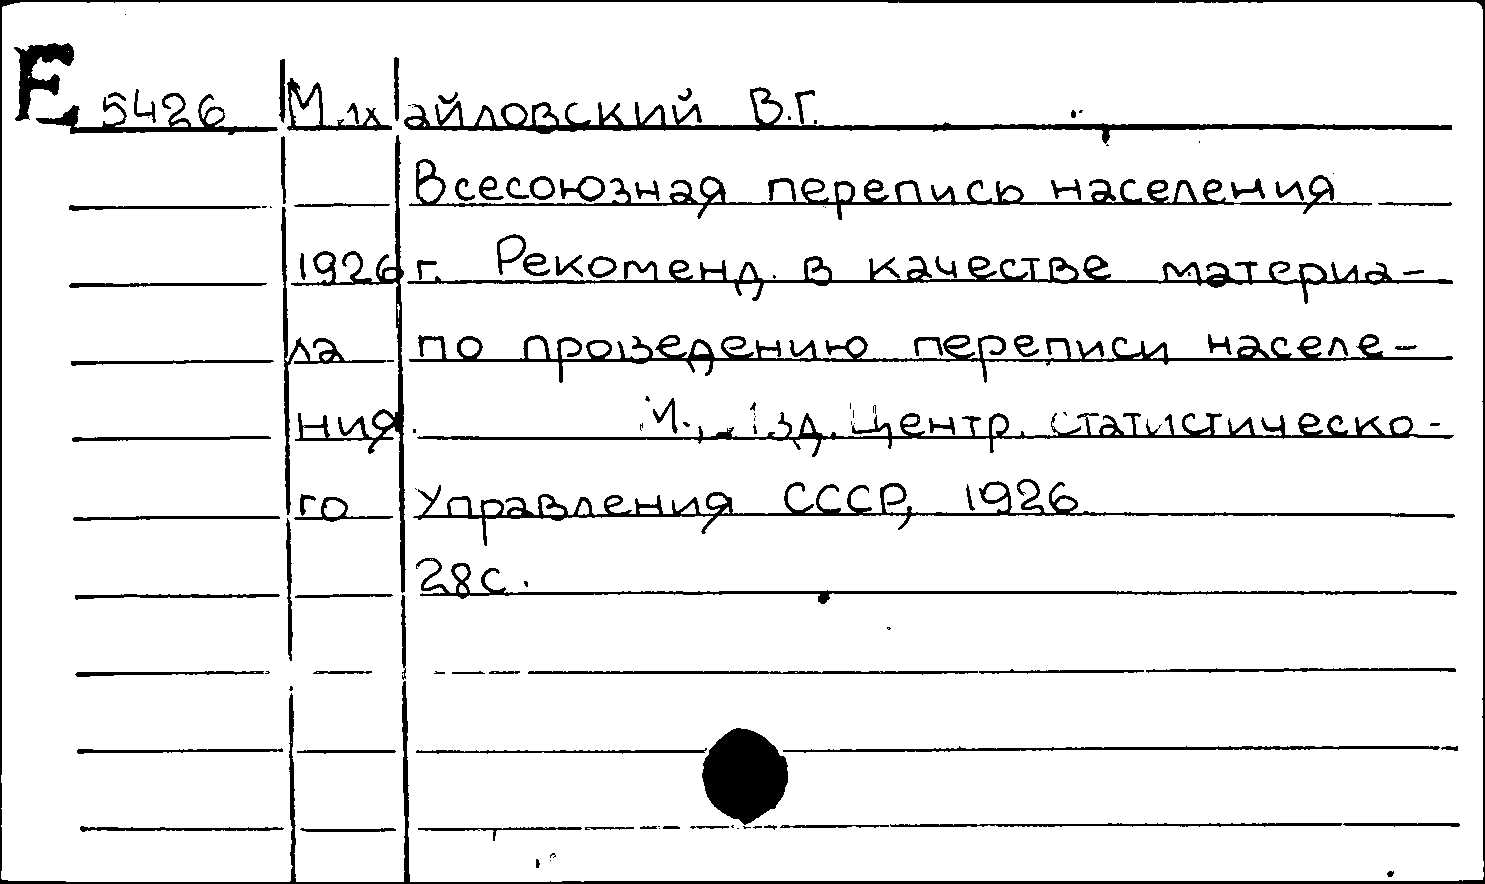 E 5426 Михайловский В.Г.
Всесоюзная перепись населения
1926 г. Рекоменд. в качестве материа-
ла по проведению переписи населе-
ния. М., Изд. Центр. статистическо-
го Управления СССР, 1926
28с.